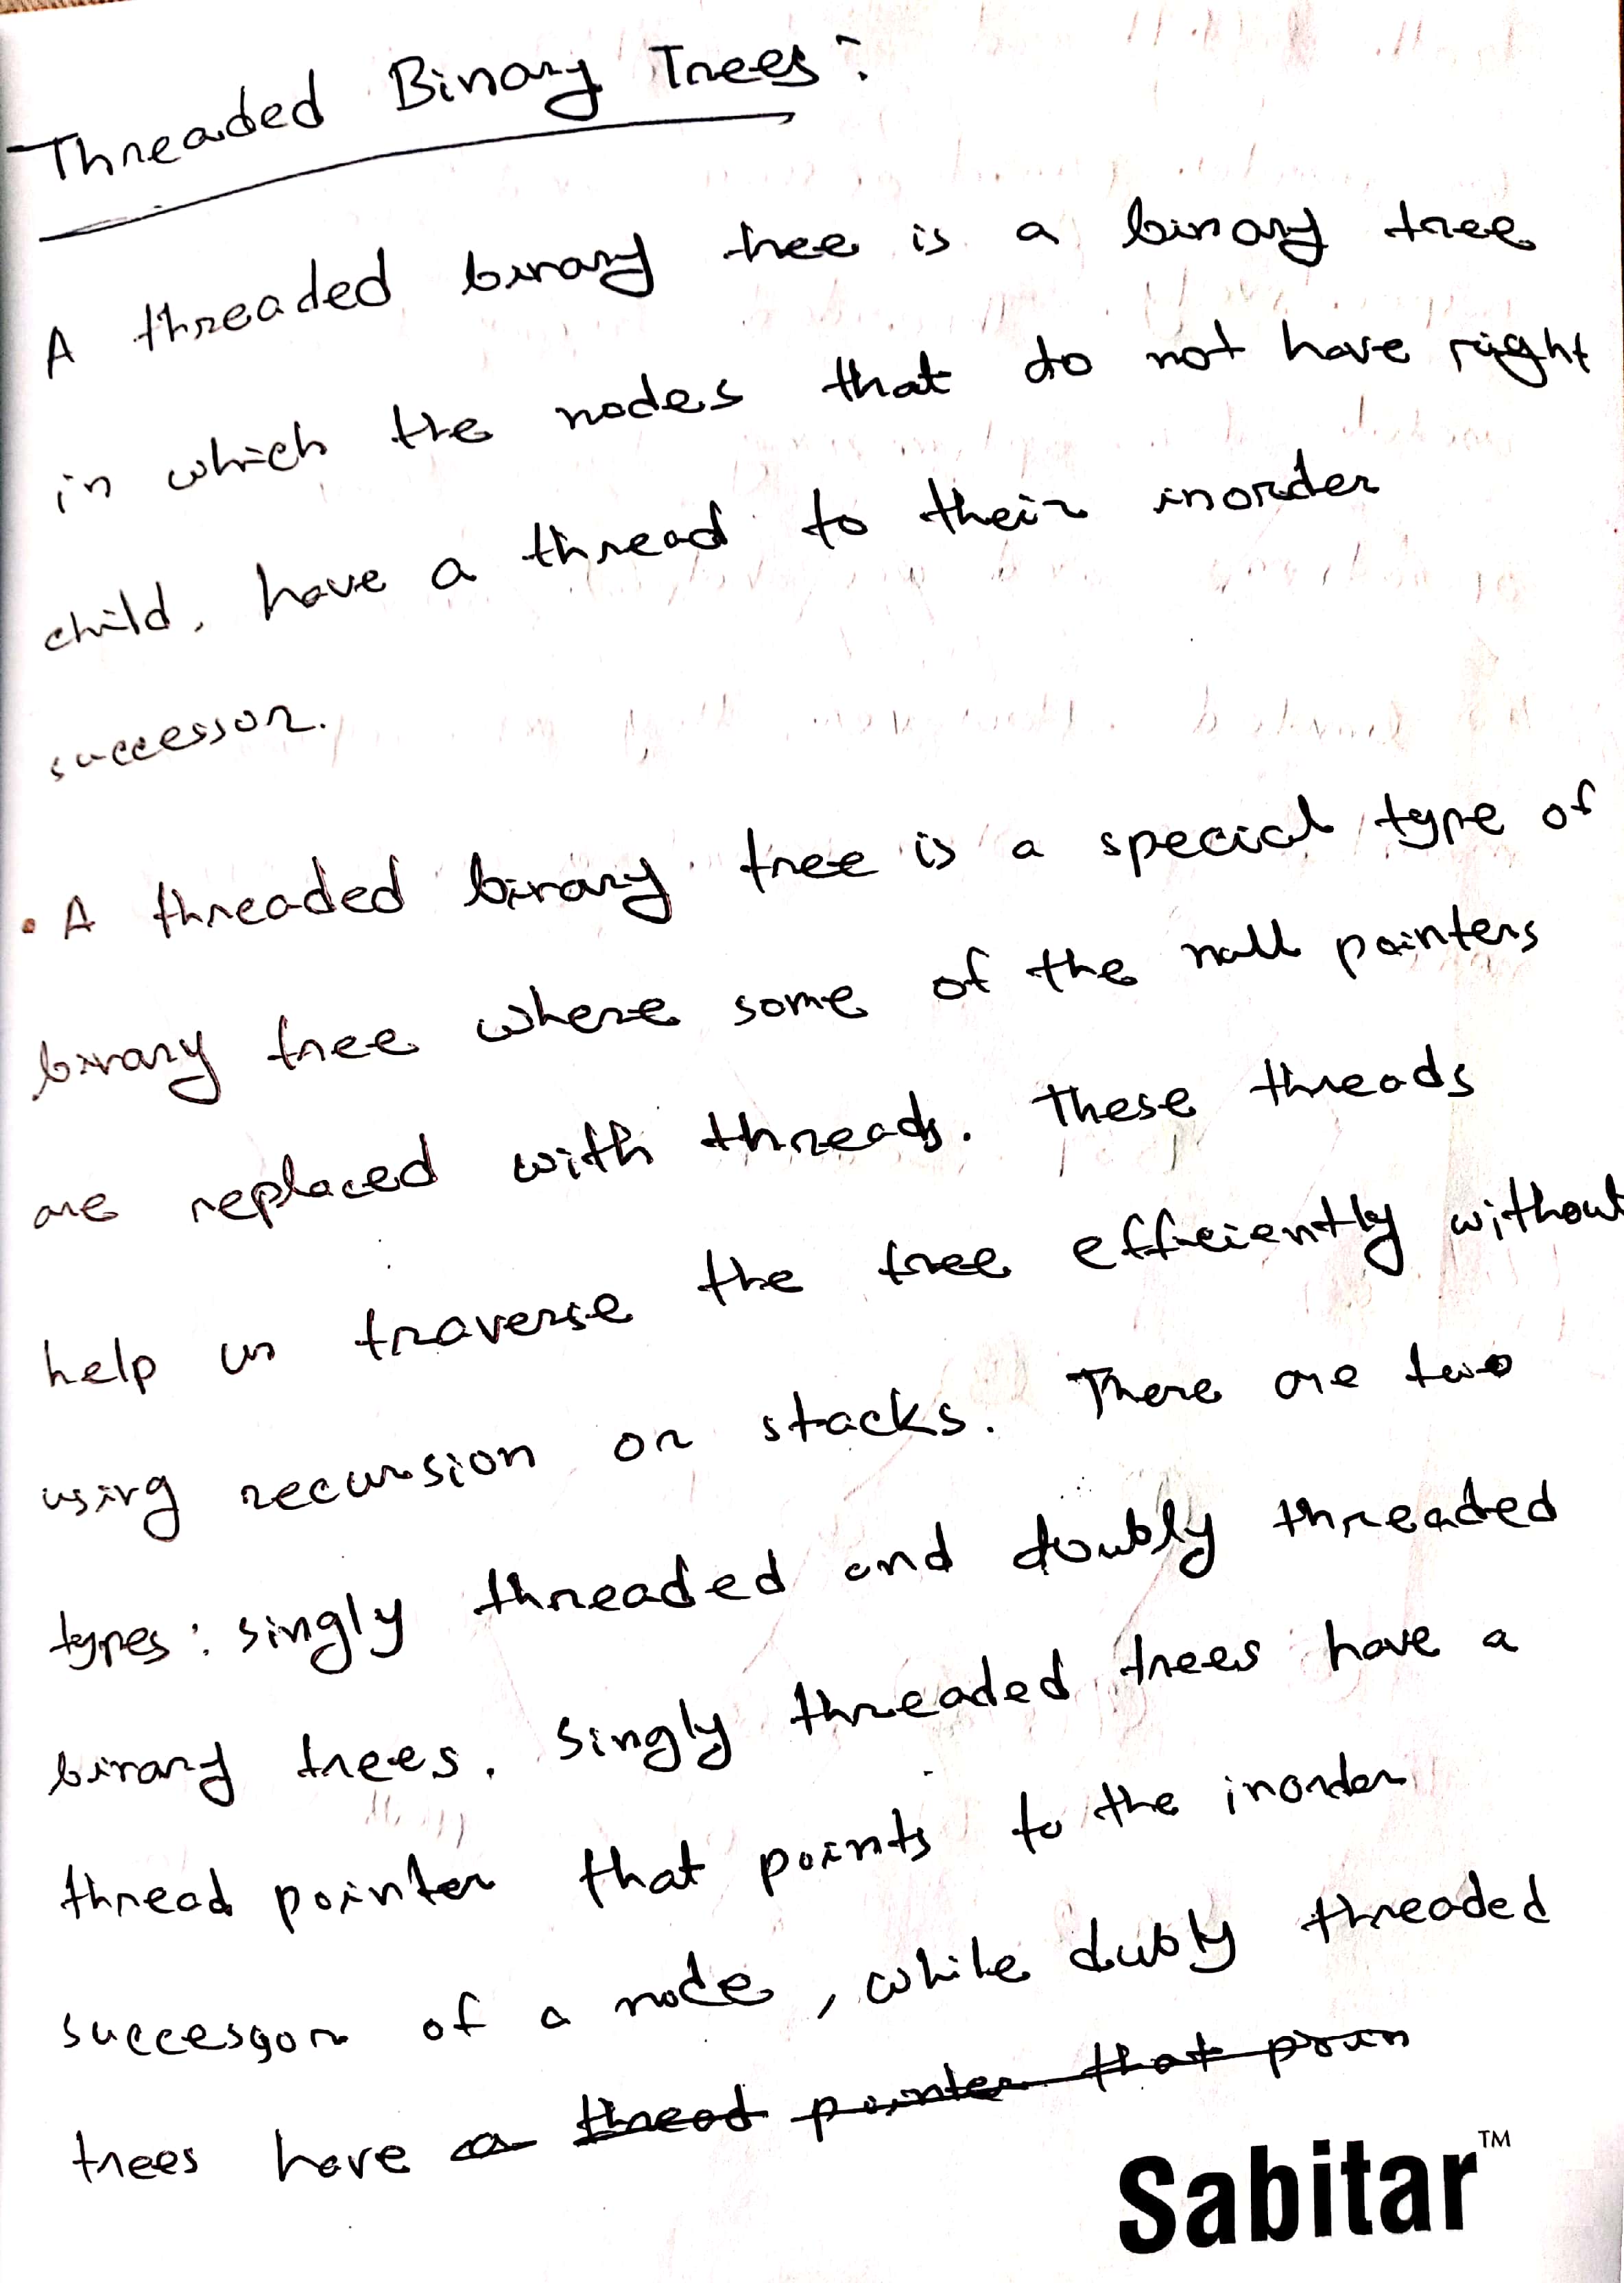 Threaded Binary Trees:
A threaded binary tree is a binary tree
in which the nodes that do not have right
child, have a thread to their inorder
successor.
• A threaded binary tree is a special type of
binary tree where some of the null pointers
are replaced with threads. These threads
help us traverse the tree efficiently without
using recursion or stacks. There are two
types: singly threaded and doubly threaded
binary trees. Singly threaded trees have a
thread pointer that points to the inorder
succesqor of a node, while dubly threaded
trees have a thread pointer that poin
Sabitar™